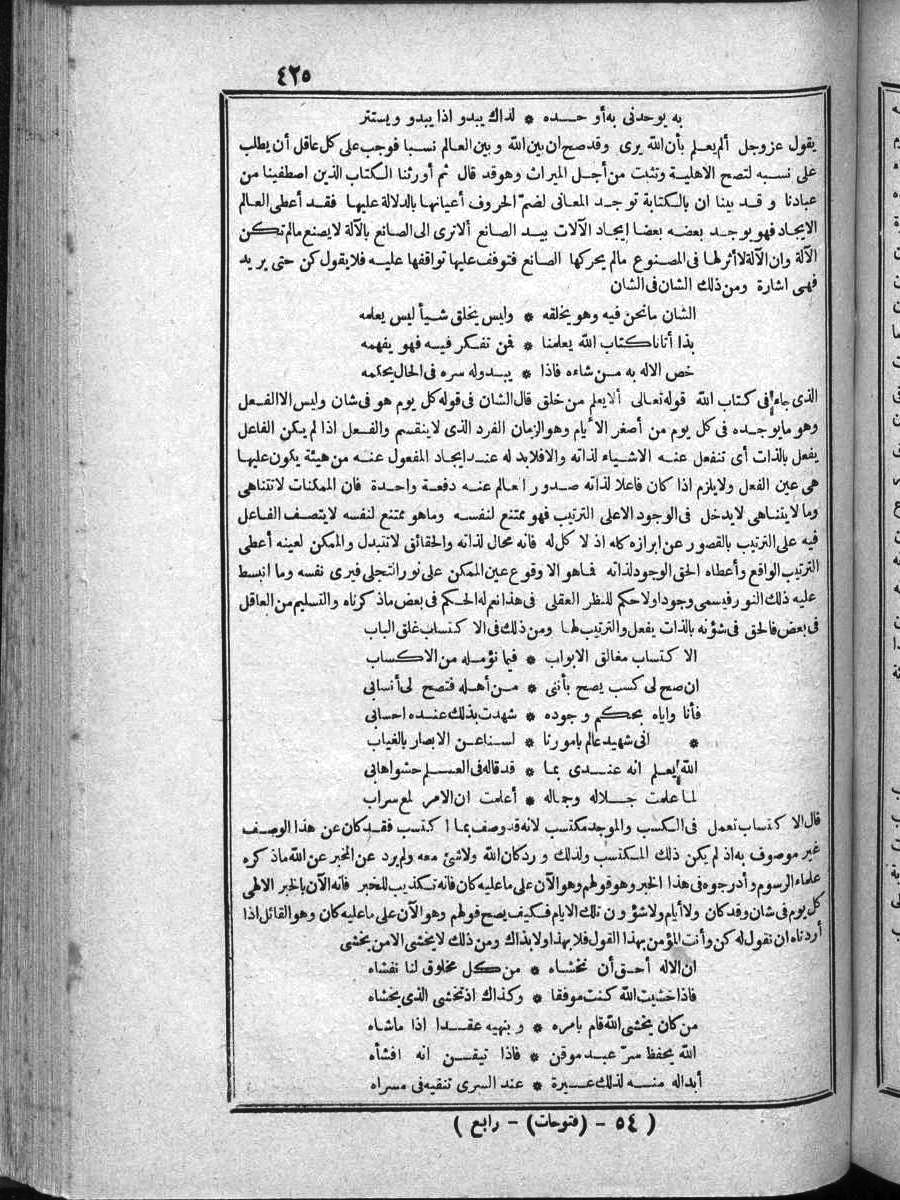 ٤٢٥
به يوحدنى به أو حده * لذاك يبدو اذا يبدو ويستتر
يقول عزوجل ألم يعلم بأن الله يرى وقد صح ان بين الله وبين العالم نسبا فوجب على كل عاقل أن يطلب
على نسبه لتصح الاهلية وتثبت من أجل الميراث وهو قد قال ثم أورثنا الكتاب الذين اصطفينا من
عبادنا وقد بينا ان بالكتابة توجد المعانى لضم الحروف أعيانها بالدلالة عليها فقد أعطى العالم
الايجاد فهو يوجد بعضه بعضا إيجاد الآلات بيد الصانع ألا ترى الى الصانع بالآلة لا يصنع مالم تكن
الآلة وان الآلة لا أثر لها فى المصنوع مالم يحركها الصانع فتوقف عليها توافقها عليه فلا يقول كن حتى يريد
فهى اشارة ومن ذلك الشان فى الشان
الشان مانحن فيه وهو يخلقه * وليس يخلق شيأ ليس يعلمه
بذا أتانا كتاب الله يعلمنا * فمن تفكر فيه فهو يفهمه
خص الاله به من شاءه فاذا * يبدو له سره فى الحال يحكمه
الذى جاء فى كتاب الله قوله تعالى ألا يعلم من خلق قال الشان فى قوله كل يوم هو فى شان وليس الا الفعل
وهو مايوجده فى كل يوم من أصغر الايام وهو الزمان الفرد الذى لا ينقسم والفعل اذا لم يكن الفاعل
يفعل بالذات أى تنفعل عنه الاشياء لذاته والافلابد له عند ايجاد المفعول عنه من هيئة يكون عليها
هى عين الفعل ولا يلزم اذا كان فاعلا لذاته صدور العالم عنه دفعة واحدة فان الممكنات لا تتناهى
وما لا يتناهى لا يدخل فى الوجود الا على الترتيب فهو ممتنع لنفسه وماهو ممتنع لنفسه لا يتصف الفاعل
فيه على الترتيب بالقصور عن ابرازه كله اذ لا كل له فانه محال لذاته والحقائق لا تتبدل والممكن لعينه أعطى
الترتيب الواقع وأعطاه الحق الوجود لذاته فماهو الا وقوع عين الممكن على نور التجلى فيرى نفسه وما انبسط
عليه ذلك النور فيسمى وجودا ولا حكم للنظر العقلى فى هذا نعم له الحكم فى بعض ماذكرناه والتسليم من العاقل
فى بعض فالحق فى شؤنه بالذات يفعل والترتيب لها ومن ذلك فى الا كتساب غلق الباب
الا كتساب مغالق الابواب * فيما نؤمله من الاكساب
ان صح لى كسب يصح بأننى * من أهله فتصح لى أنسابى
فأنا واياه بحكم وجوده * شهدت بذلك عنده احسابى
* انى شهيد عالم بامورنا * لسنا عن الابصار بالغياب
الله يعلم انه عندى بما * قد قاله فى العلم حشو اهابى
لما علمت جلاله وجماله * أعلمت ان الامر لمع سراب
قال الا كتساب تعمل فى الكسب والموجد مكتسب لانه قد وصف بما ا كتسب فقد كان عن هذا الوصف
غير موصوف به اذ لم يكن ذلك المكتسب ولذلك ورد كان الله ولا شئ معه ولم يرد عن المخبر عن الله ماذكره
علماء الرسوم وأدرجوه فى هذا الخبر وهو قولهم وهو الآن على ماعليه كان فانه تكذيب للخبر فانه الآن بالخبر الالهى
كل يوم فى شان وقد كان ولا أيام ولا شؤون تلك الايام فكيف يصح قولهم وهو الآن على ماعليه كان وهو القائل اذا
أردناه ان نقول له كن وأنت المؤمن بهذا القول فلا بهذا ولا بذاك ومن ذلك لا يخشى الا من يخشى
ان الاله أحق أن نخشاه * من كل مخلوق لنا نفشاه
فاذا خشيت الله كنت موفقا * وكذاك اذ تخشى الذى يخشاه
من كان يخشى الله قام بامره * وبنهيه عقدا اذا ماشاه
الله يحفظ سر عبد موقن * فاذا تيقن انه افشأه
أبدا له منه لذلك عبرة * عند السرى تنقيه فى مسراه
( ٥٤ - (فتوحات) - رابع )